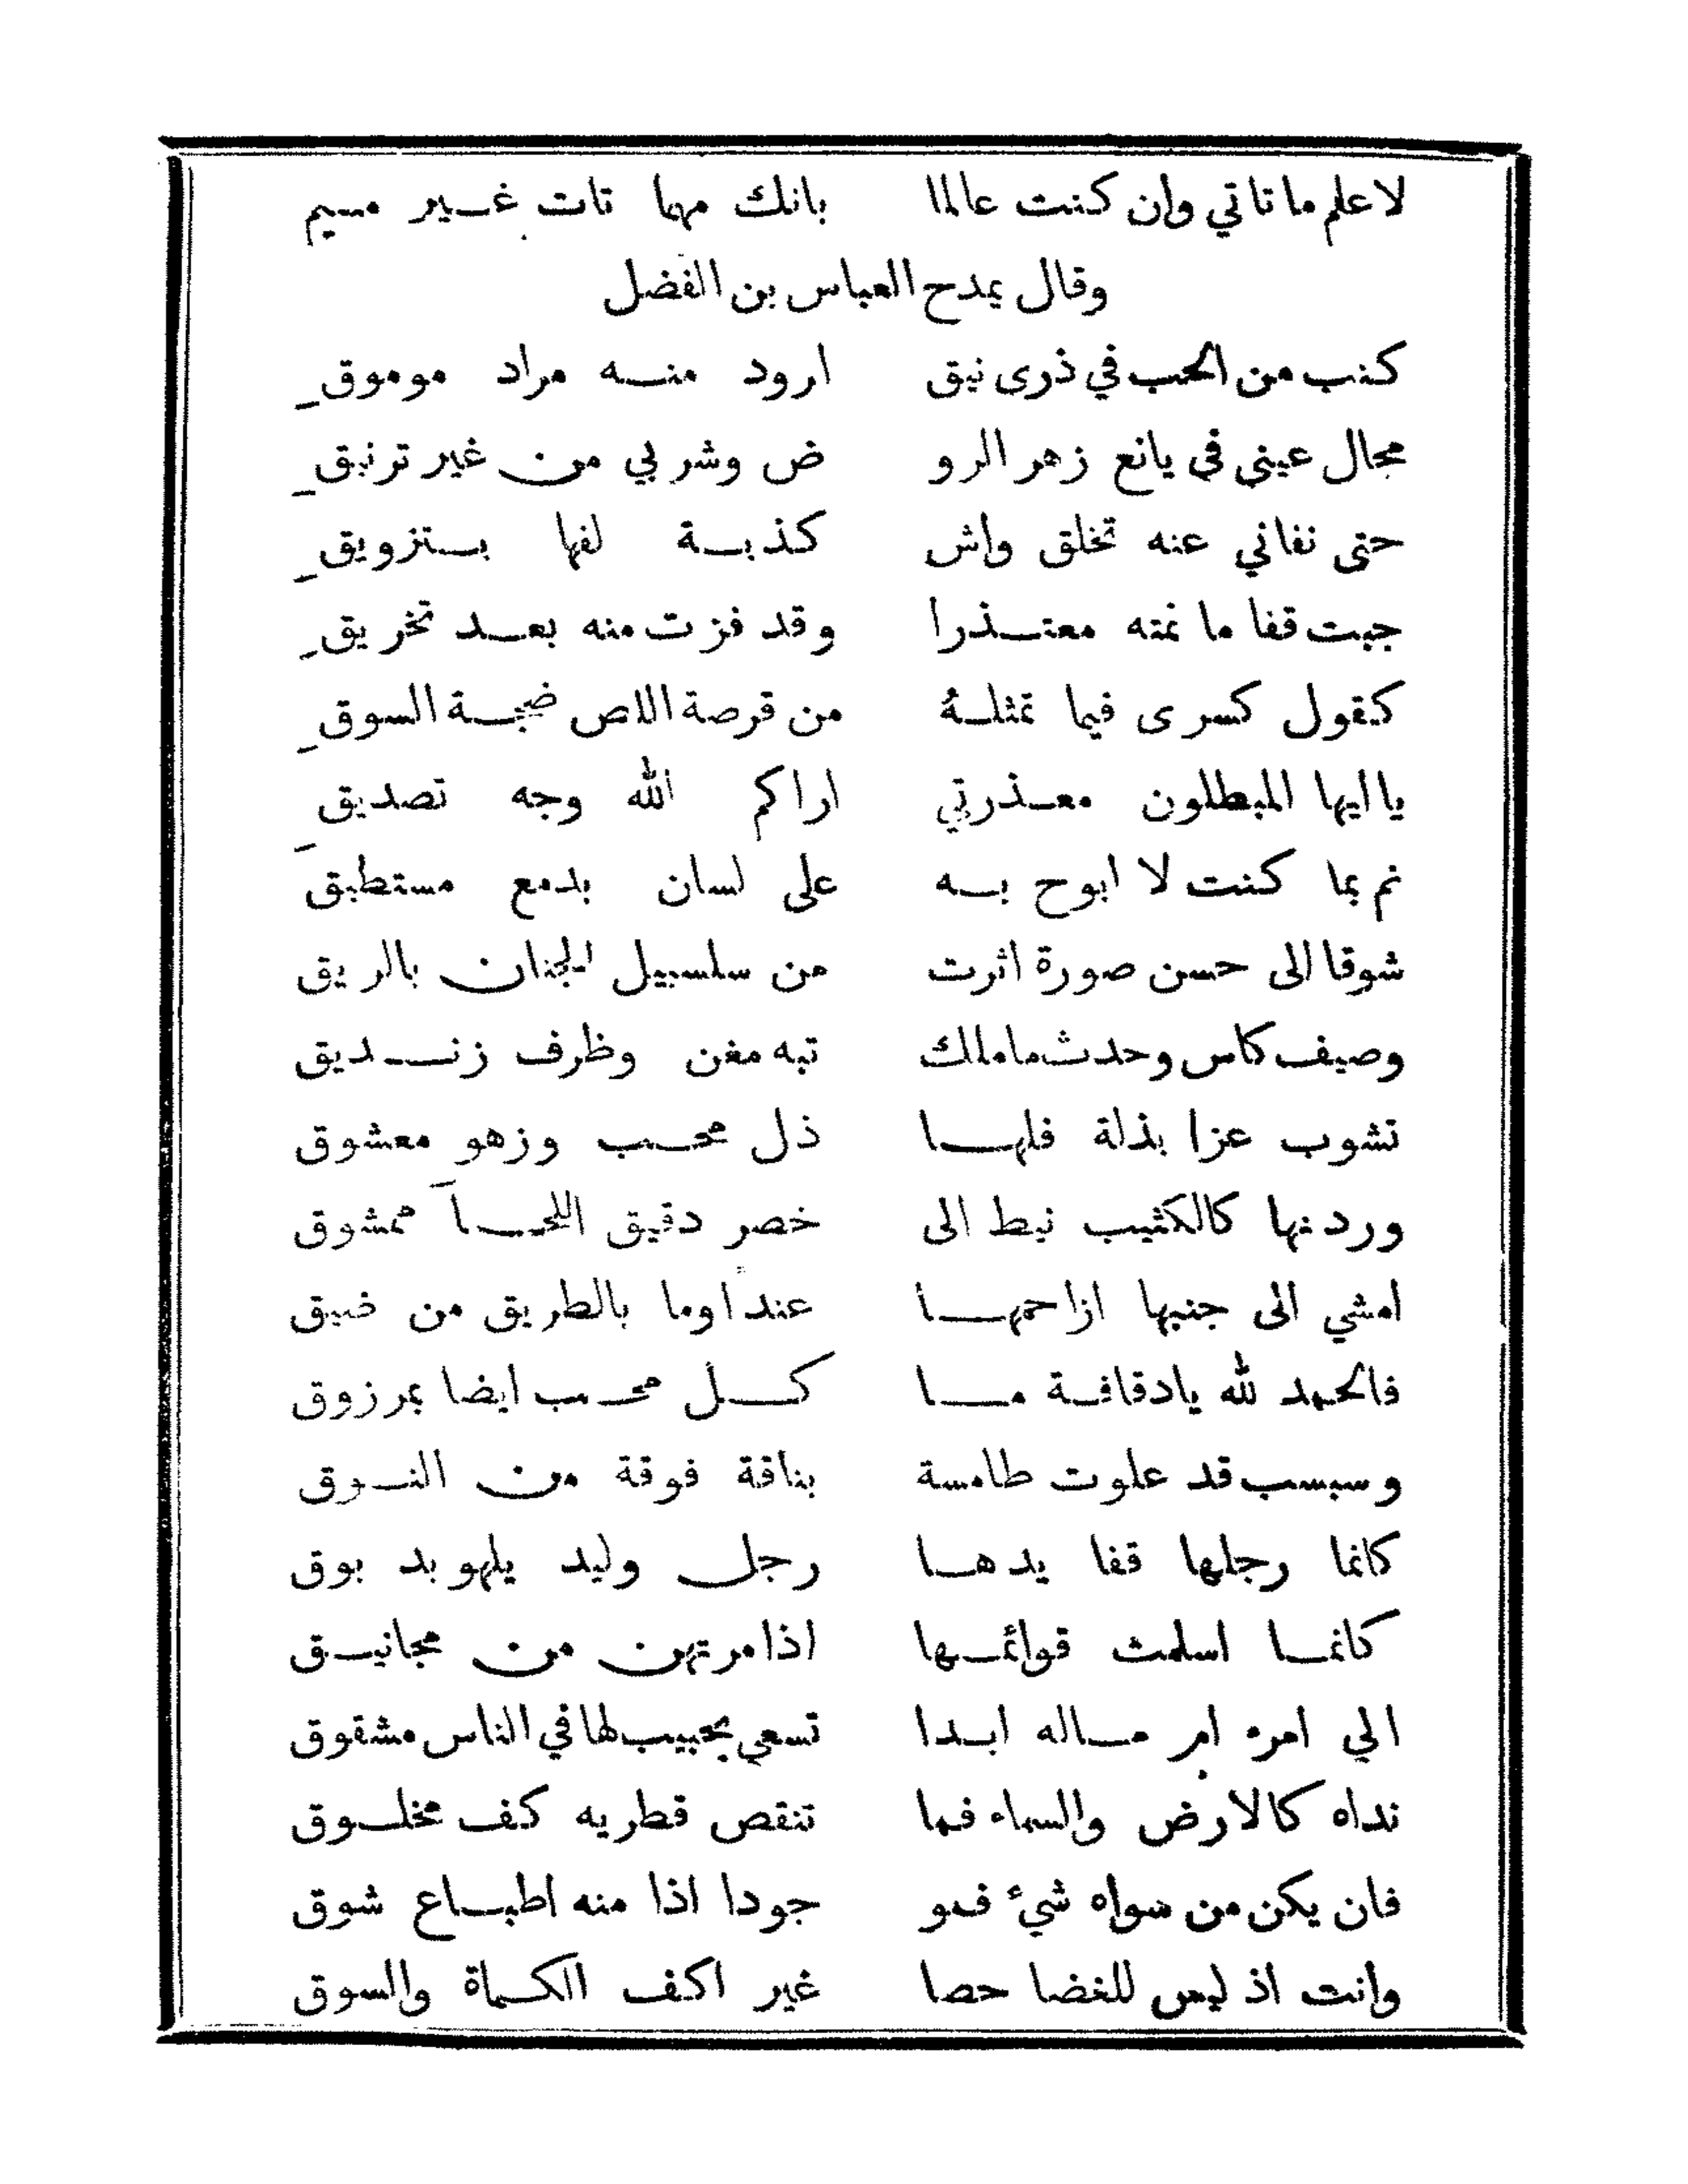 لاعلم ما تاتي وان كنت عالما بانك مهما تات غير مسيم
وقال يمدح العباس بن الفضل
كنب من الحب في ذرى نيق ارود منه مراد موموق
مجال عيني في يانع زهر الرو ض وشربي من غير ترنيق
حتى نفاني عنه تخلق واش كذبة لفها بتزويق
جبت قفا ما نمته معتذرا وقد فزت منه بعد تخريق
كقول كسرى فيما تمثله من قرصة اللص ضجة السوق
يا ايها المبطلون معذرتي اراكم الله وجه تصديق
نم بما كنت لا ابوح به على لسان بدمع مستطبق
شوقا الى حسن صورة اثرت من سلسبيل الجنان بالريق
وصيف كاس وحدث ماملك تبه مغن وظرف زنديق
تشوب عزا بذلة فلها ذل محب وزهو معشوق
وردنها كالكثيب نبط الى خصر دقيق اللحا ممشوق
امشي الى جنبها ازاحمها عنداً وما بالطريق من ضيق
فالحمد لله يادقافة ما كل محب ايضا بمرزوق
وسبسب قد علوت طامسة بناقة فوقة من النوق
كانما رجلها قفا يدها رجل وليد يلهو بد بوق
كانما اسلمث قوائمها اذا مرتهن من مجانيق
الي امرء ام ماله ابدا تسعى بجيب لها في الناس مشقوق
نداه كالارض والسماء فما تنقص قطريه كف مخلوق
فان يكن من سواه شيء فمو جودا اذا منه اطباع شوق
وانت اذ ليس للغضا حصا غير اكف الكماة والسوق